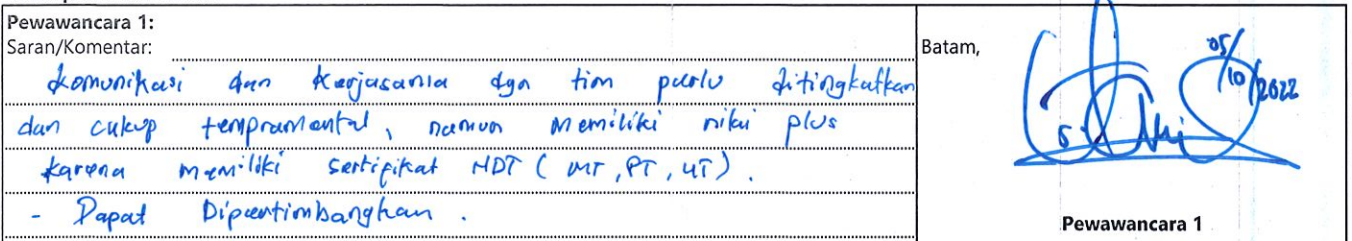 Pewawancara 1:
Saran/Komentar:
Komunikasi dan Kerjasama dgn tim perlu ditingkatkan
dan cukup tempramental, namun memiliki nilai plus
karena memiliki sertifikat NDT (MT, PT, UT).
- Dapat Dipertimbangkan.
Batam,
05/10/2022
Pewawancara 1